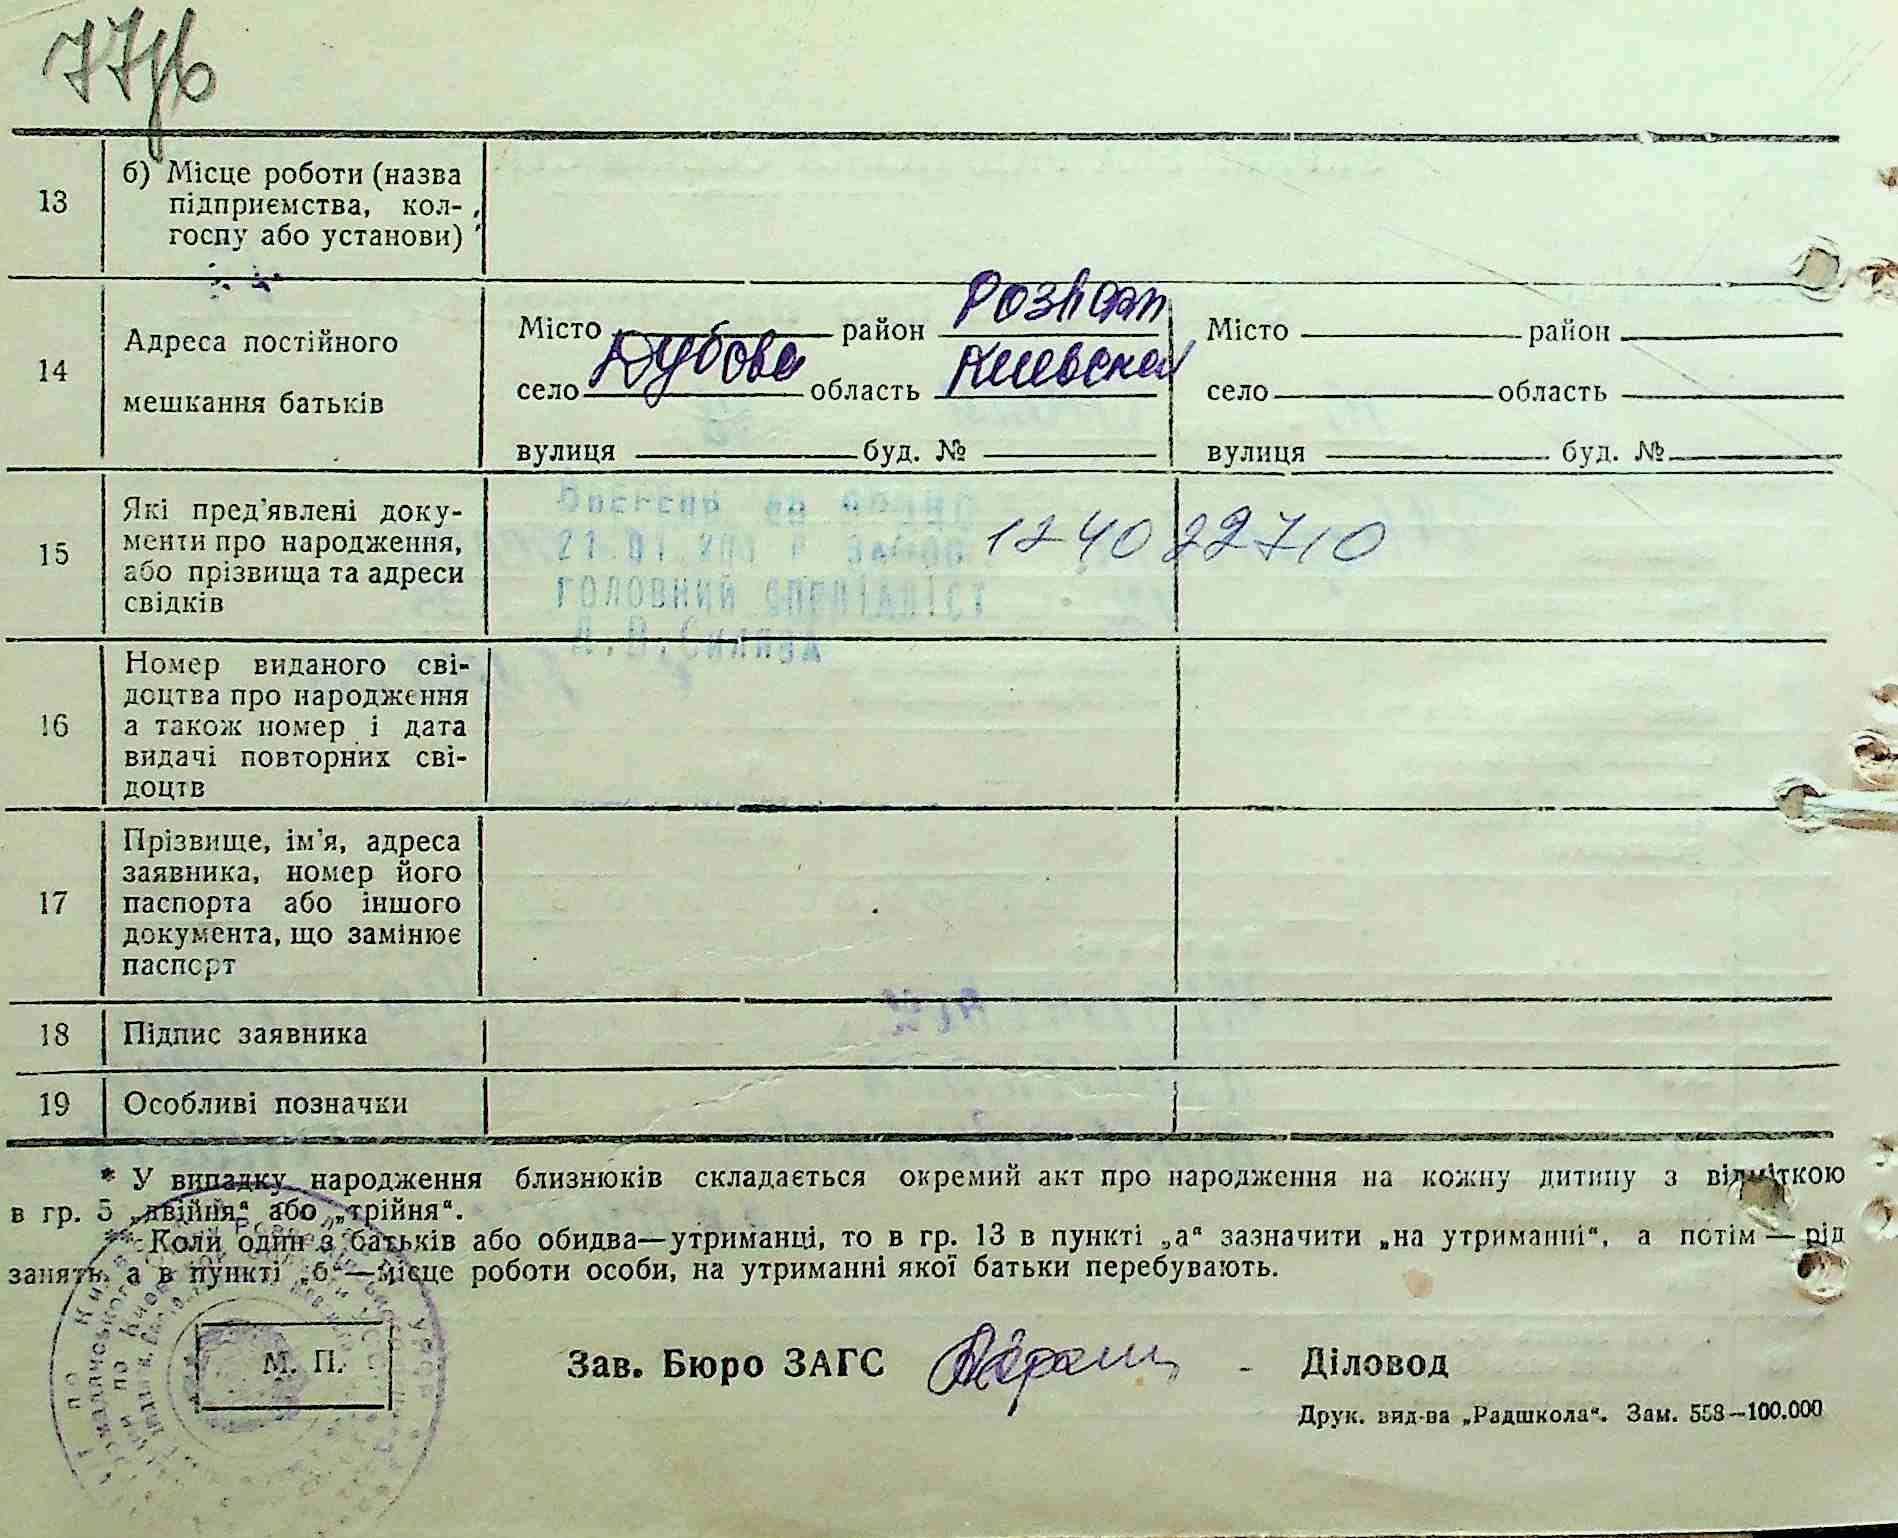 13
б) Місце роботи (назва
підприємства, кол-
госпу або установи)
14
Адреса постійного
мешкання батьків
Місто район Розваж
село Дубова область Киевская
вулиця буд. №
Місто район
село область
вулиця буд. №
15
Які пред'явлені доку-
менти про народження,
або прізвища та адреси
свідків
124022710
головний спеціаліст
16
Номер виданого сві-
доцтва про народження
а також номер і дата
видачі повторних сві-
доцтв
17
Прізвище, ім'я, адреса
заявника, номер його
паспорта або іншого
документа, що замінює
паспорт
18
Підпис заявника
19
Особливі позначки
* У випадку народження близнюків складається окремий акт про народження на кожну дитину з відміткою
в гр. 5 „двійня“ або „трійня“.
** Коли один з батьків або обидва—утриманці, то в гр. 13 в пункті „а“ зазначити „на утриманні“, а потім — рід
занять, а в пункті „б“—місце роботи особи, на утриманні якої батьки перебувають.
М. П.
Зав. Бюро ЗАГС
Діловод
Друк. вид-ва „Радшкола“. Зам. 558—100.000